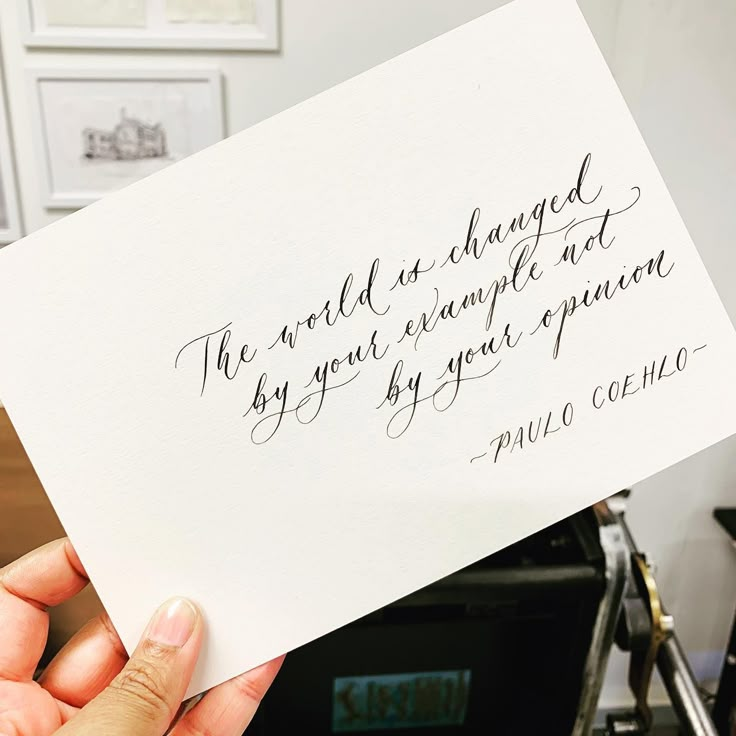 The world is changed
by your example not
by your opinion
~PAULO COEHLO~